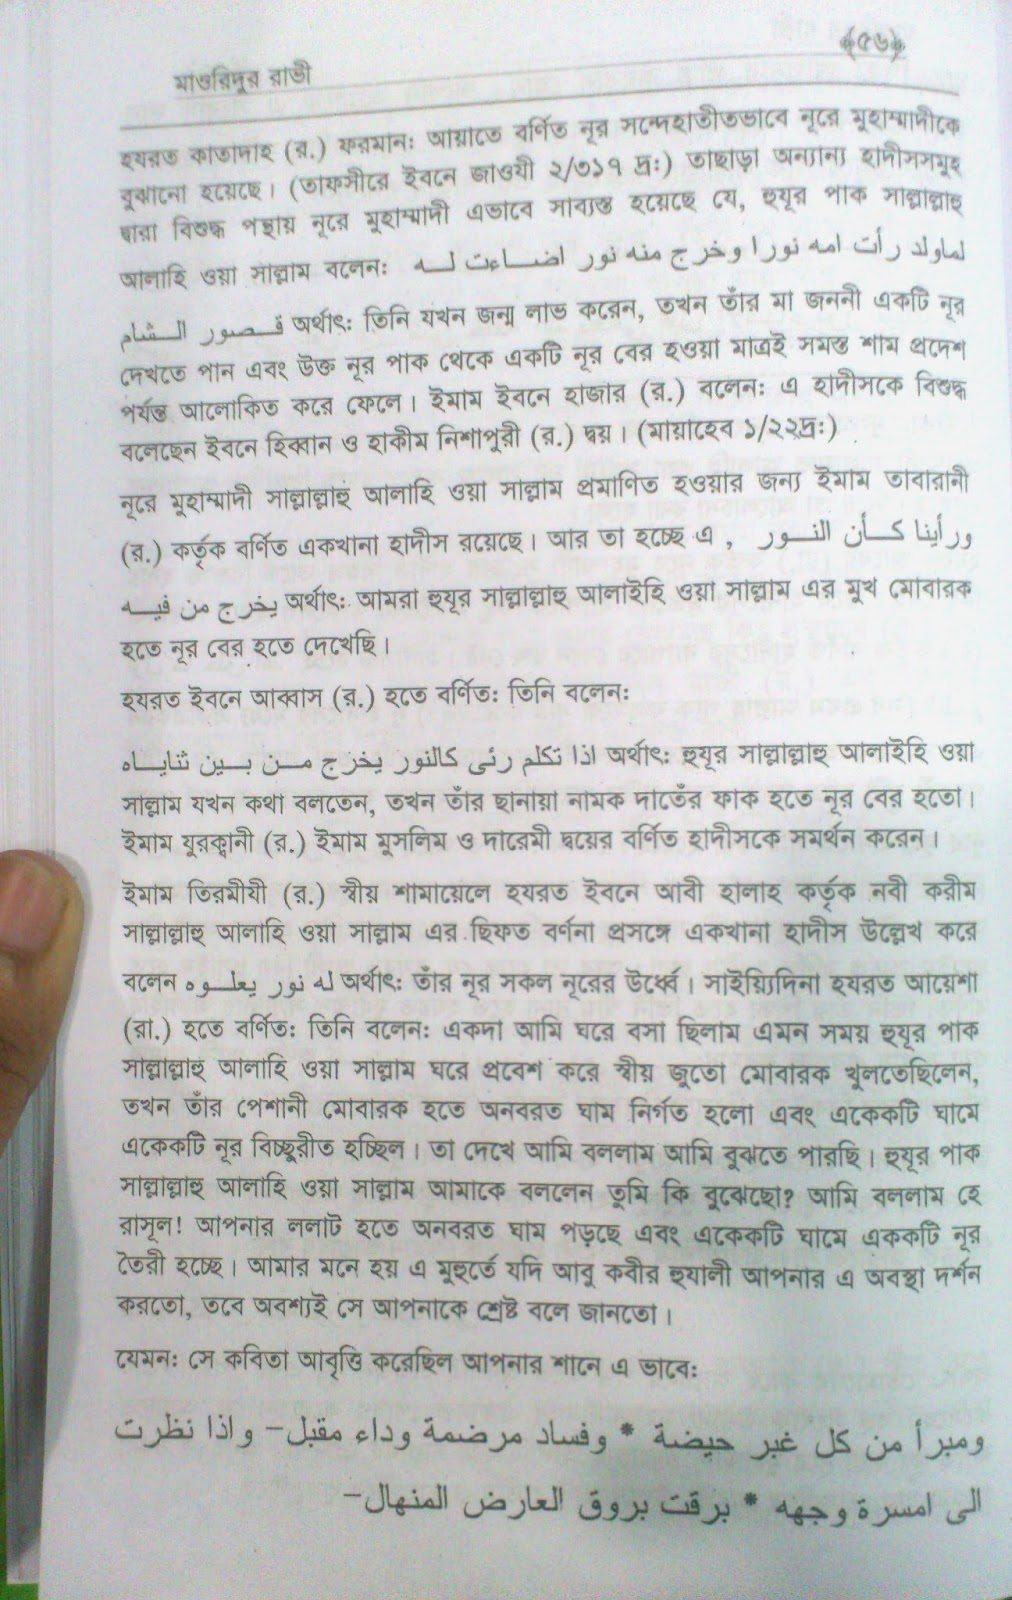 ﴾৫৬﴿
মাওরিদুর রাভী
হযরত কাতাদাহ (র.) ফরমানঃ আয়াতে বর্ণিত নূর সন্দেহাতীতভাবে নূরে মুহাম্মাদীকে
বুঝানো হয়েছে। (তাফসীরে ইবনে জাওযী ২/৩১৭ দ্রঃ) তাছাড়া অন্যান্য হাদীসসমূহ
দ্বারা বিশুদ্ধ পন্থায় নূরে মুহাম্মাদী এভাবে সাব্যস্ত হয়েছে যে, হুযূর পাক সাল্লাল্লাহু
আলাহি ওয়া সাল্লাম বলেনঃ لماولد رأت امه نورا وخرج منه نور اضاءت له
قصور الشام অর্থাৎঃ তিনি যখন জন্ম লাভ করেন, তখন তাঁর মা জননী একটি নূর
দেখতে পান এবং উক্ত নূর পাক থেকে একটি নূর বের হওয়া মাত্রই সমস্ত শাম প্রদেশ
পর্যন্ত আলোকিত করে ফেলে। ইমাম ইবনে হাজার (র.) বলেনঃ এ হাদীসকে বিশুদ্ধ
বলেছেন ইবনে হিব্বান ও হাকীম নিশাপুরী (র.) দ্বয়। (মায়াহেব ১/২২দ্রঃ)
নূরে মুহাম্মাদী সাল্লাল্লাহু আলাহি ওয়া সাল্লাম প্রমাণিত হওয়ার জন্য ইমাম তাবারানী
(র.) কর্তৃক বর্ণিত একখানা হাদীস রয়েছে। আর তা হচ্ছে এ , ورأينا كأن النور
يخرج من فيه অর্থাৎঃ আমরা হুযূর সাল্লাল্লাহু আলাইহি ওয়া সাল্লাম এর মুখ মোবারক
হতে নূর বের হতে দেখেছি।
হযরত ইবনে আব্বাস (র.) হতে বর্ণিতঃ তিনি বলেনঃ
اذا تكلم رئى كالنور يخزج من بين ثناياه অর্থাৎঃ হুযূর সাল্লাল্লাহু আলাইহি ওয়া
সাল্লাম যখন কথা বলতেন, তখন তাঁর ছানায়া নামক দাতেঁর ফাক হতে নূর বের হতো।
ইমাম যুরক্বানী (র.) ইমাম মুসলিম ও দারেমী দ্বয়ের বর্ণিত হাদীসকে সমর্থন করেন।
ইমাম তিরমীযী (র.) স্বীয় শামায়েলে হযরত ইবনে আবী হালাহ কর্তৃক নবী করীম
সাল্লাল্লাহু আলাহি ওয়া সাল্লাম এর ছিফত বর্ণনা প্রসঙ্গে একখানা হাদীস উল্লেখ করে
বলেন له نور يعلوه অর্থাৎঃ তাঁর নূর সকল নূরের উর্ধ্বে। সাইয়্যিদিনা হযরত আয়েশা
(রা.) হতে বর্ণিতঃ তিনি বলেনঃ একদা আমি ঘরে বসা ছিলাম এমন সময় হুযূর পাক
সাল্লাল্লাহু আলাহি ওয়া সাল্লাম ঘরে প্রবেশ করে স্বীয় জুতো মোবারক খুলতেছিলেন,
তখন তাঁর পেশানী মোবারক হতে অনবরত ঘাম নির্গত হলো এবং একেকটি ঘামে
একেকটি নূর বিচ্ছুরীত হচ্ছিল। তা দেখে আমি বললাম আমি বুঝতে পারছি। হুযূর পাক
সাল্লাল্লাহু আলাহি ওয়া সাল্লাম আমাকে বললেন তুমি কি বুঝেছো? আমি বললাম হে
রাসূল! আপনার ললাট হতে অনবরত ঘাম পড়ছে এবং একেকটি ঘামে এককটি নূর
তৈরী হচ্ছে। আমার মনে হয় এ মুহুর্তে যদি আবু কবীর হুযালী আপনার এ অবস্থা দর্শন
করতো, তবে অবশ্যই সে আপনাকে শ্রেষ্ট বলে জানতো।
যেমনঃ সে কবিতা আবৃত্তি করেছিল আপনার শানে এ ভাবেঃ
ومبرأ من كل غبر حيضة * وفساد مرضمة وداء مقبل– واذا نظرت
الى امسرة وجهه * برقت بروق العارض المنهال–